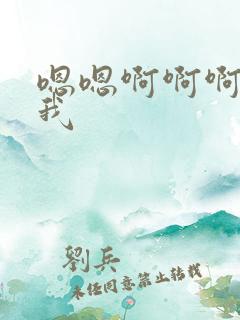 嗯嗯啊啊啊
我
劉兵
未经同意禁止转载